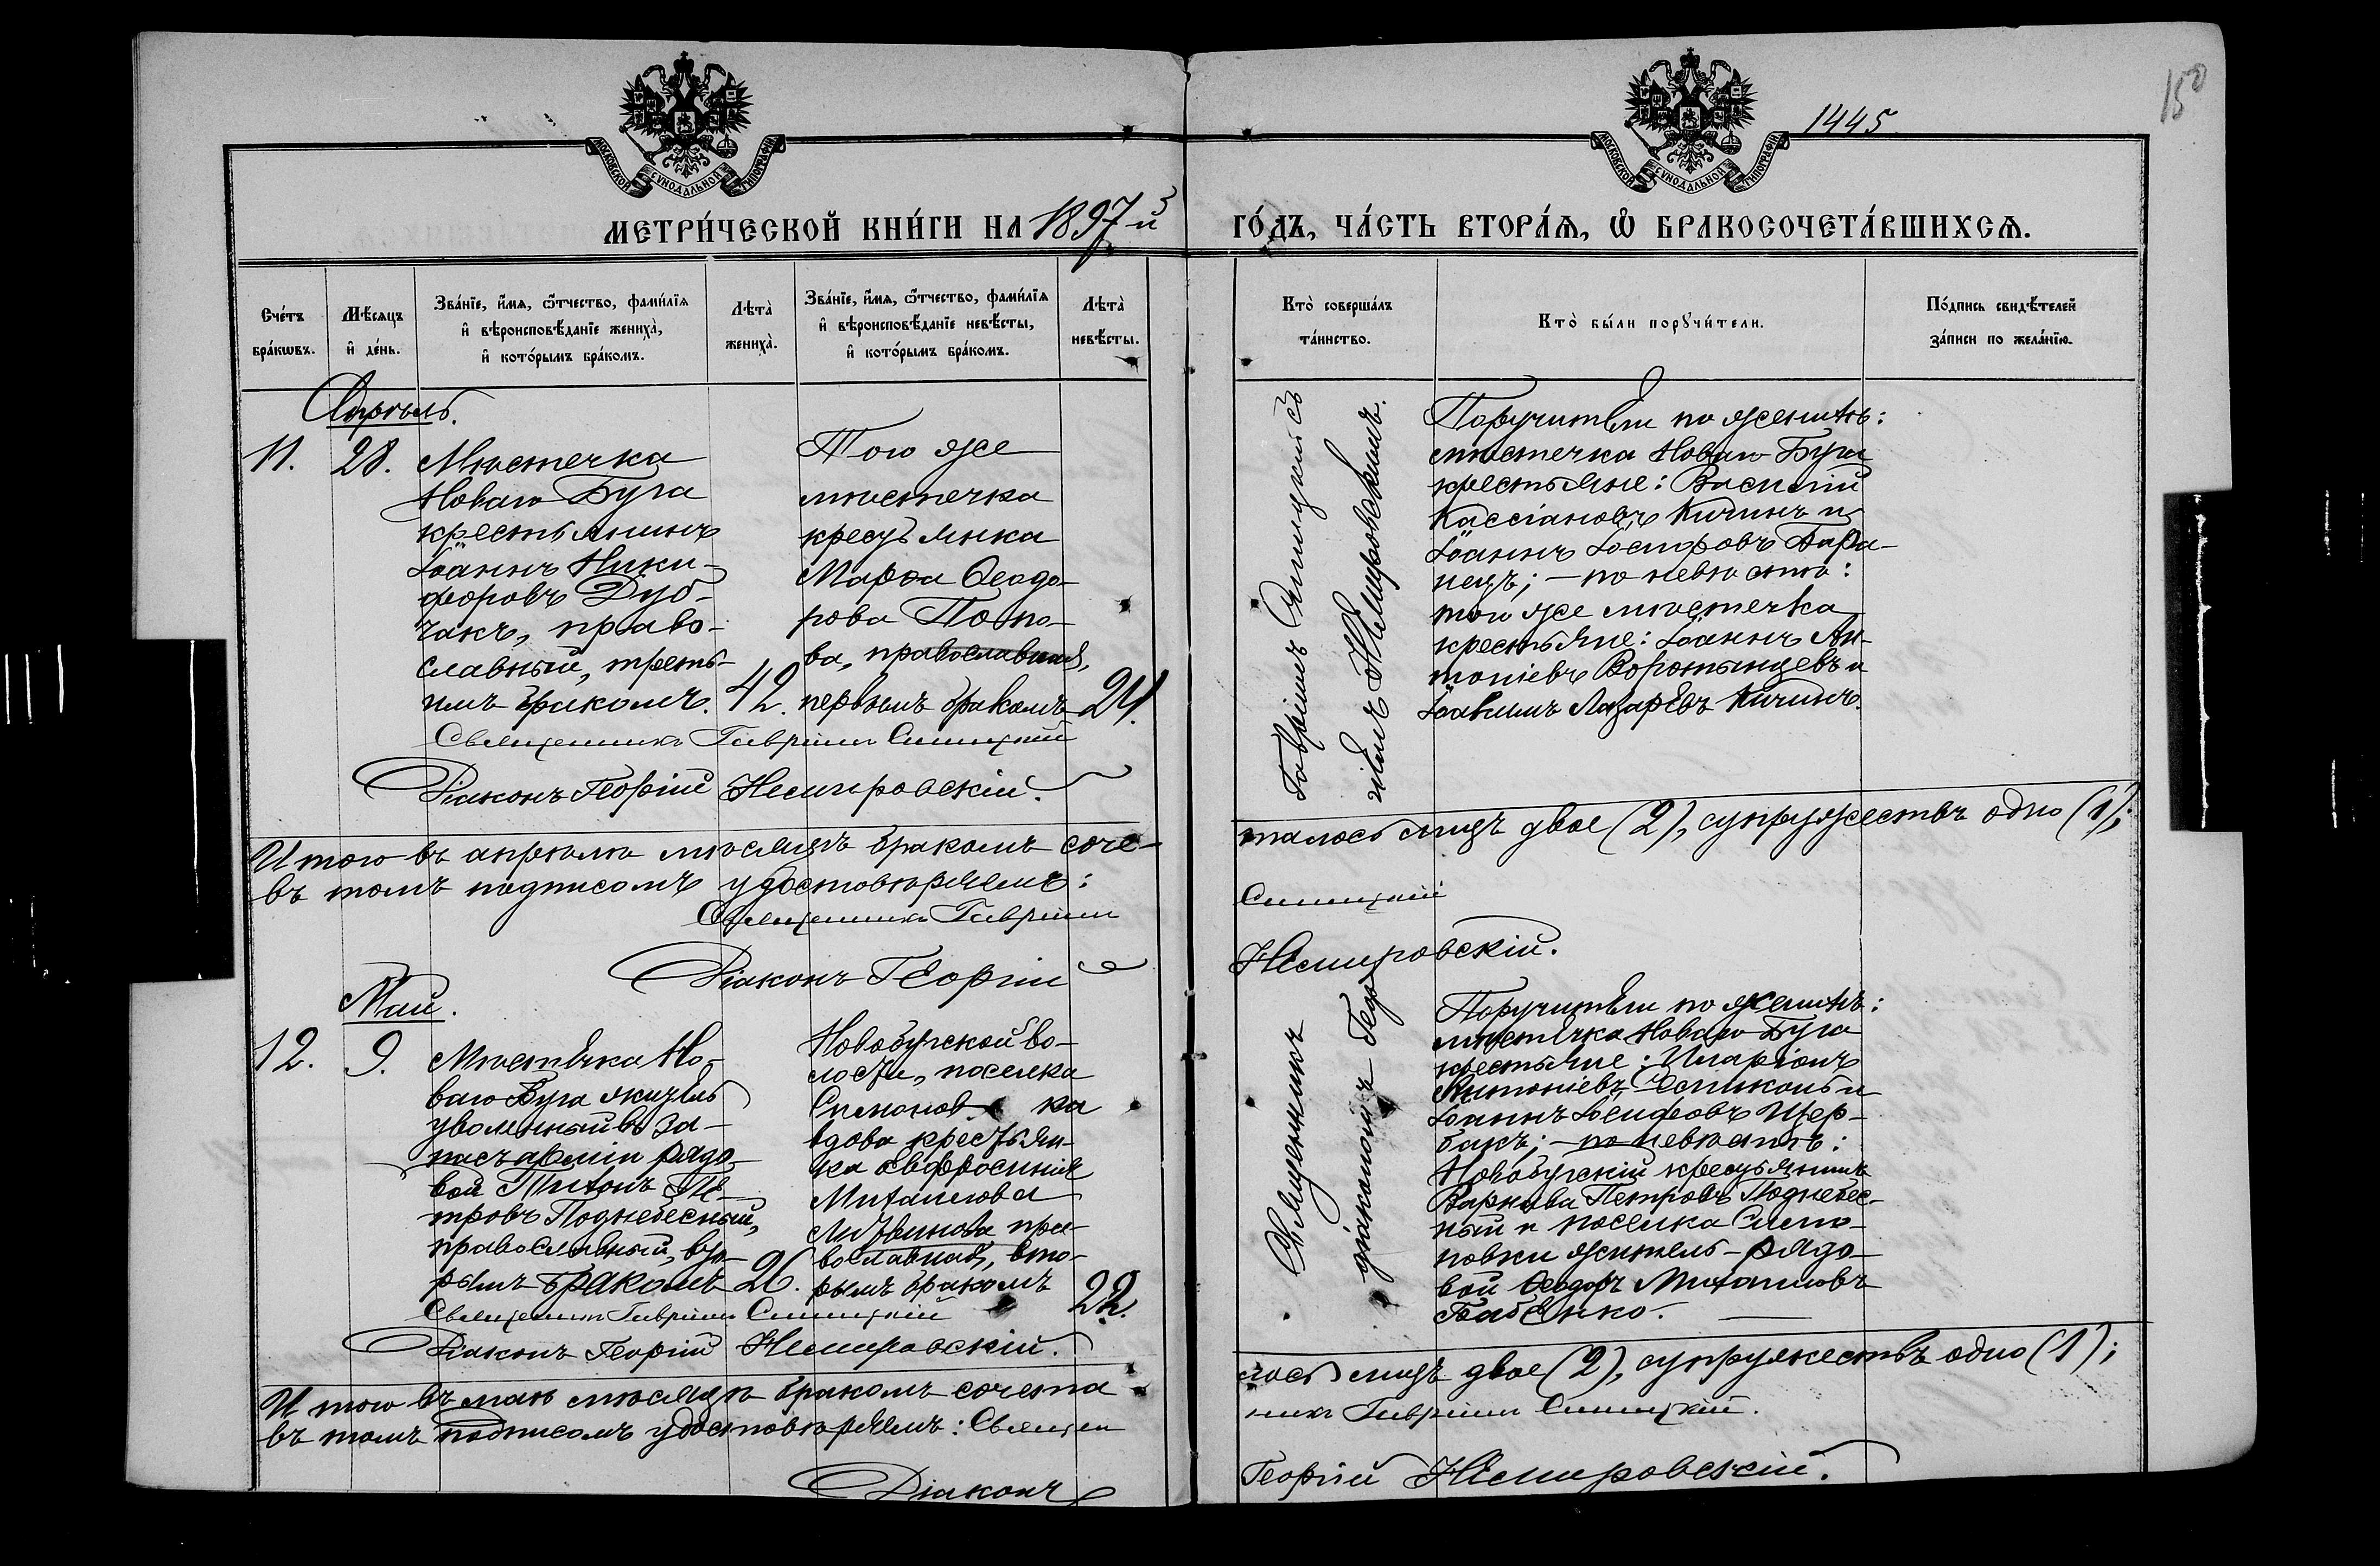 150
1445
МОСКОВСКОЙ СѴНОДАЛЬНОЙ ТИПОГРАФІИ
МОСКОВСКОЙ СѴНОДАЛЬНОЙ ТИПОГРАФІИ
МЕТРИ́ЧЕСКОЙ КНИ́ГИ НА 1897-й
ГО́ДЪ, ЧА́СТЬ ВТОРА́Ѧ, Ѽ БРАКОСОЧЕТА́ВШИХСѦ.
Сче́тъ бра́кѡвъ.
Мѣ́сѧцъ и҆ де́нь.
Зва́нїе, и҆́мѧ, ѻ҆́тчество, фами́лїѧ
и҆ вѣроисповѣ́данїе жениха̀,
и҆ кото́рымъ бра́комъ.
Лѣта̀ жениха̀.
Зва́нїе, и҆́мѧ, ѻ҆́тчество, фами́лїѧ
и҆ вѣроисповѣ́данїе невѣ́сты,
и҆ кото́рымъ бра́комъ.
Лѣта̀ невѣ́сты.
Кто̀ соверша́лъ
та́инство.
Кто̀ бы́ли порꙋчи́тели.
По́дпись свидѣ́телей
за́писи по жела́нїю.
Апрѣль.
11.
28.
Мѣстечка
Новаго Буга
крестьянинъ
Іоаннъ Ники-
форовъ Дуб-
чакъ, право-
славный, треть-
имъ бракомъ.
42.
Того же
мѣстечка
крестьянка
Марѳа Ѳеодо-
рова Попо-
ва, православная,
первымъ бракомъ
24.
Гавріилъ Синицкій съ
Немировскимъ.
Поручители по женихѣ:
мѣстечка Новаго Буга
крестьяне: Василій
Кассіановъ Кичинъ и
Іоаннъ Іосифовъ Бара-
нецъ; – по невѣстѣ:
того же мѣстечка
крестьяне: Іоаннъ Ан-
тоніевъ Воротынцевъ и
Іоакимъ Лазаревъ Кичинъ.
Священникъ Гавріилъ Синицкій
Діаконъ Георгій Немировскій.
Итого въ апрѣлѣ мѣсяцѣ бракомъ соче-
талось лицъ двое (2), супружествъ одно (1);
въ томъ подписомъ удостовѣряемъ:
Священникъ Гавріилъ
Синицкій
Діаконъ Георгій
Немировскій.
Май.
12.
9.
Мѣстечка Но-
ваго Буга житель
уволенный въ за-
пасъ арміи рядо-
вой Тихонъ Пе-
тровъ Поднебесный,
православный, вто-
рымъ бракомъ
26.
Новобугской во-
лости, поселка
Симоновка
вдова крестьян-
ка Евфросинія
Михаилова
Литвинова, пра-
вославная, вто-
рымъ бракомъ
22.
Священникъ
діакономъ Геор
Поручители по женихѣ:
мѣстечка Новаго Буга
крестьяне: Иларіонъ
Антоніевъ и
Іоаннъ Іосифовъ Щер-
бакъ; – по невѣстѣ:
Новобугскій крестьянинъ
Варнава Петровъ Поднебес-
ный и поселка Симо-
новки житель – рядо-
вой Ѳеодоръ Михаиловъ
Бабенко.
Священникъ Гавріилъ Синицкій
Діаконъ Георгій Немировскій.
Итого въ маѣ мѣсяцѣ бракомъ сочета
лось лицъ двое (2), супружествъ одно (1);
въ томъ подписомъ удостовѣряемъ: Священ
никъ Гавріилъ Синицкій.
Діаконъ
Георгій Немировскій.